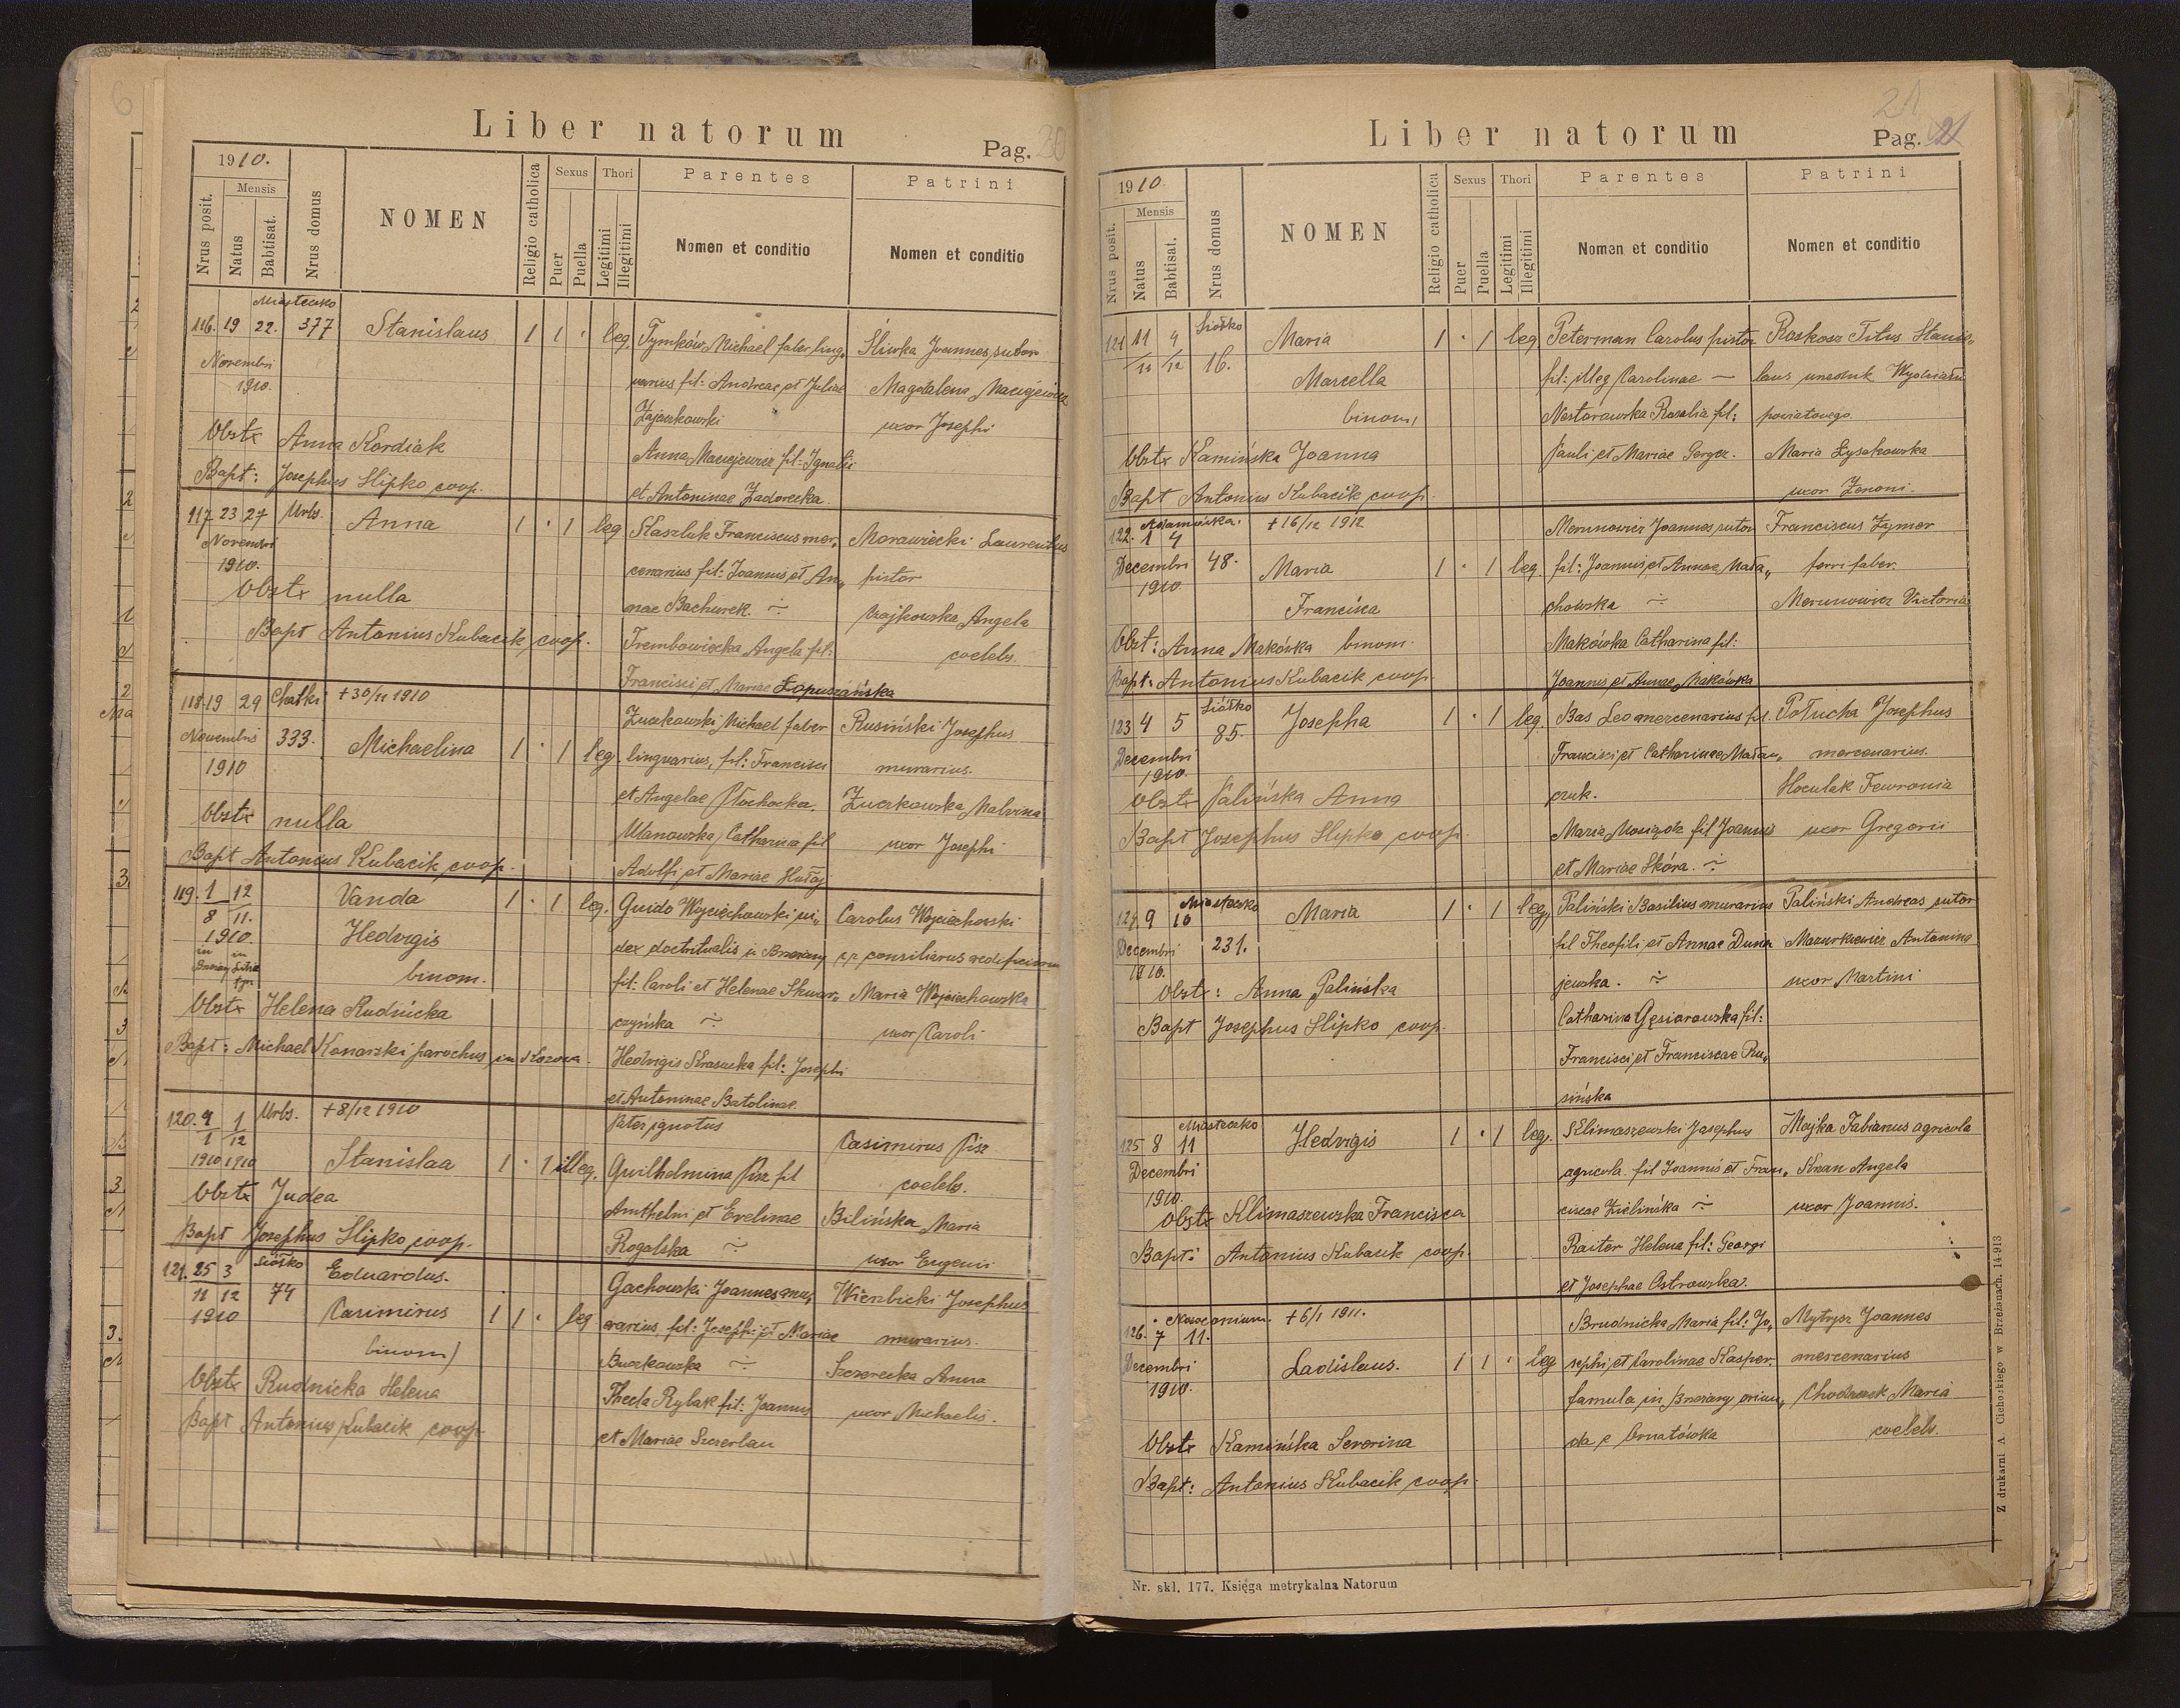 Liber natorum
Pag. 20
1910.
Nrus posit.
Mensis
Natus
Babtisat.
Nrus domus
NOMEN
Religio catholica
Sexus
Puer
Puella
Thori
Legitimi
Illegitimi
Parentes
Nomen et conditio
Patrini
Nomen et conditio
Miasteczko
116. 19 22. 377 Stanislaus 1 1 · leg. Tymków Michael faber ling, Śliwka Joannes sutor
Novembri uarius fil: Andreae et Juliae Magdalena Maciejewicz
1910. Zajączkowski uxor Josephi
Obstx Anna Kordiak Anna Maciejewicz fil: Ignatii
Bapt: Josephus Slipko coop. et Antoninae Zadorecka.
117 23 27 Urbs. Anna 1 · 1 leg Staszluk Franciscus mer, Morawiecki Laurentius
Novembri cenarius fil: Joannis et An, pistor
1910.
Obstx nulla nae Bachurek. ~ Czajkowska Angela
Bapt Antonius Kubacik, coop. Trembowiecka Angela fil: coelebs.
Francisci et Mariae Łopuszańska
118. 19 29 Chatki + 30/11 1910 Zuczkowski Michael faber Rusiński Josephus
Novembri 333. Michaelina 1 · 1 leg. linguarius, fil: Francisci murarius.
1910 et Angelae Płochocka. Zuczkowska Malvina
Obstx nulla Ulanowska Catharina fil uxor Josephi
Bapt Antonius Kubacik, coop. Adolfi et Mariae Hułaj
119. 1 12 Vanda 1 · 1 leg. Guido Wojciechowski ju, Carolus Wojciechowski
8 11. dex in Brzeżany consiliarus aedificiorum
1910. Hedvigis
in in
binom. fil: Caroli et Helenae Skwar, Maria Wojciechowska
Obstx Helena Rudnicka czyńska ~ uxor Caroli
Bapt: Michael Konarski parochus in Kozowa. Hedvigis Krasucka fil: Josephi
et Antoninae Batolinae.
120. 9 1 Urbs. + 8/12 1910 Pater ignotus
1 12 Casimirus Pisz
1910 1910 Stanislaa 1 · 1 illeg. Guilhelmina Pisz fil coelebs.
Obstx Judea Anthelmi et Evelinae Bilińska Maria
Bapt Josephus Slipko, coop. Rogalska ~ uxor Eugenii
121. 25 3 Siółko Eduardus. Gachowski Joannes mu, Wierzbicki Josephus
11 12 74
1910 Casimirus 1 1 · leg rarius fil: Josephi et Mariae murarius.
binom) Buczkowska ~ Szczerecka Anna
Obstx Rudnicka Helena Thecla Rybak fil: Joannis uxor Michaelis.
Bapt Antonius Kubacik coop. et Mariae Szczerlau
Liber natorum
21
Pag. 21
1910.
Nrus posit.
Mensis
Natus
Babtisat.
Nrus domus
NOMEN
Religio catholica
Sexus
Puer
Puella
Thori
Legitimi
Illegitimi
Parentes
Nomen et conditio
Patrini
Nomen et conditio
121 11 4 Siółko Maria 1 · 1 leg Peterman Carolus pistor Roskosz Titus Stanis,
/11 /12 16. Marcella fil: illeg Carolinae — laus Wydziału
binom, Nestorowska Rosalia fil: powiatowego.
Obstx Kamińska Joanna Pauli et Mariae Gerger. Maria Łysakowska
Bapt Antonius Kubacik coop. uxor Zenoni.
Adamówka. + 16/12 1912
122. 1 4 Morunowicz Joannes sutor Franciscus Zymer
Decembri 48. Maria 1 · 1 leg. fil: Joannis et Annae Mała, ferri faber.
1910 Francisca chowska ~ Morunowicz Victoria
Obst: Anna Makówka binom. Makówka Catharina fil:
Bapt: Antonius Kubacik coop. Joannis et Annae Makówka
Siółko
123 4 5 85. Josepha 1 · 1 leg. Bas Leo mercenarius fil. Połucha Josephus
Decembri Francisci et Catharinae Matau, mercenarius.
1910.
Obstx Palińska Anna czuk. Hoculak Fewronia
Bapt Josephus Slipko coop. Maria Mosiądz fil Joannis uxor Gregorii
et Mariae Skóra. ~
Miasteczko
124. 9 10 Maria 1 · 1 leg, Paliński Basilius murarius Paliński Andreas sutor
Decembri 231. fil Theofili et Annae Duna Mazurkiewicz Antonina
1910.
Obstx: Anna Palińska jewska. ~ uxor Martini
Bapt Josephus Slipko coop. Catharina Gęsiorowska fil:
Francisci et Franciscae Ru,
sińska
Miasteczko
125 8 11 Hedvigis 1 · 1 leg. Klimaszewski Josephus Majka Fabianus agricola
Decembri agricola fil Joannis et Fran, Knan Angela
1910.
Obstx Klimaszewska Francisca ciscae Zielińska ~ uxor Joannis.
Bapt: Antonius Kubacik coop. Raiter Helena fil: Georgi
et Josephae Ostrowska.
Nosocomium. + 6/1 1911.
126. 7 11. Brudnicka Maria fil: Jo, Mytrysz Joannes
Decembri Ladislaus. 1 1 · leg sephi et Carolinae Kasper. mercenarius
1910. famula in Brzeżany oriun, Maria
Obstx Kamińska Severina da e Ornatówka coelebs.
Bapt: Antonius Kubacik coop.
Nr. skł. 177. Księga metrykalna Natorum
Z drukarni A Cichockiego w Brzeżanach. 14-913